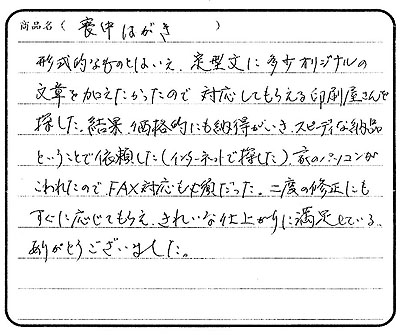 商品名(喪中はがき)
形式的なものとはいえ、定型文に多少オリジナルの
文章を加えたかったので対応してもらえる印刷屋さんを
探した。結果、価格的にも納得がいき、スピーディな納品
ということで依頼した(インターネットで探した)。家のパソコンが
こわれたので、FAX対応も必須だった。二度の修正にも
すぐに応じてもらえ、きれいな仕上がりに満足している。
ありがとうございました。